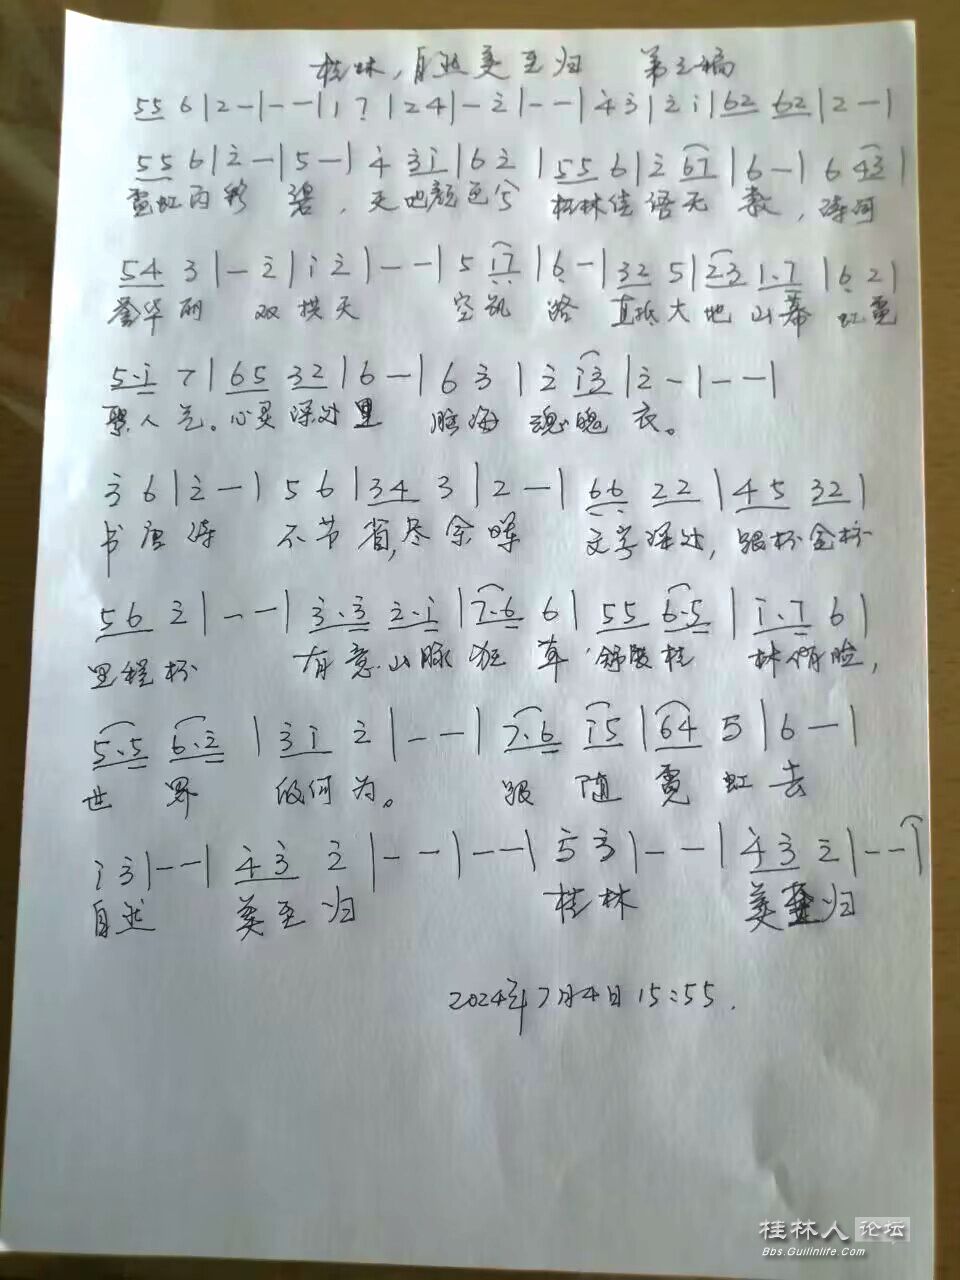 桂林,自然美至归 第之编
55 6|2-|--|1 7|24|-2|--|43|2i|62 62|2-|
55 6|2-|5-|4 3i|62|55 6|2 67|6-|6 43|
霓虹两彩 碧,天地颜色分 桂林佳语天 教,漆河
54 3|-2|i2|--|5 i7|6-|32 5|23 1.7|62|
誉华丽 双拱天 空凯 路 直抵大地山幕 虹霓
5.i 7|65 32|6-|6 3|2 i3|2-|--|
聚人气。心灵深处里 脑海 魂魄 衣。
3 6|2-|5 6|34 3|2-|66 22|45 32|
书唐诗 不节省,尽余晖 文字深处,银杯金杯
56 2|--|3.3 2.i|7.6 6|55 6.5|i.7 6|
里程杯 有意山脉狂 草,舒展桂 林俏脸,
5.5 6.2|3i 2|--|7.6 i5|64 5|6-|
世 界 的何为。 跟 随 霓 虹去
i3|--|43 2|--|--|53|--|43 2|--|
自然 美至归 桂林 美至归
2024年7月4日15:55.
桂林人论坛
Bbs.Guilinlife.Com